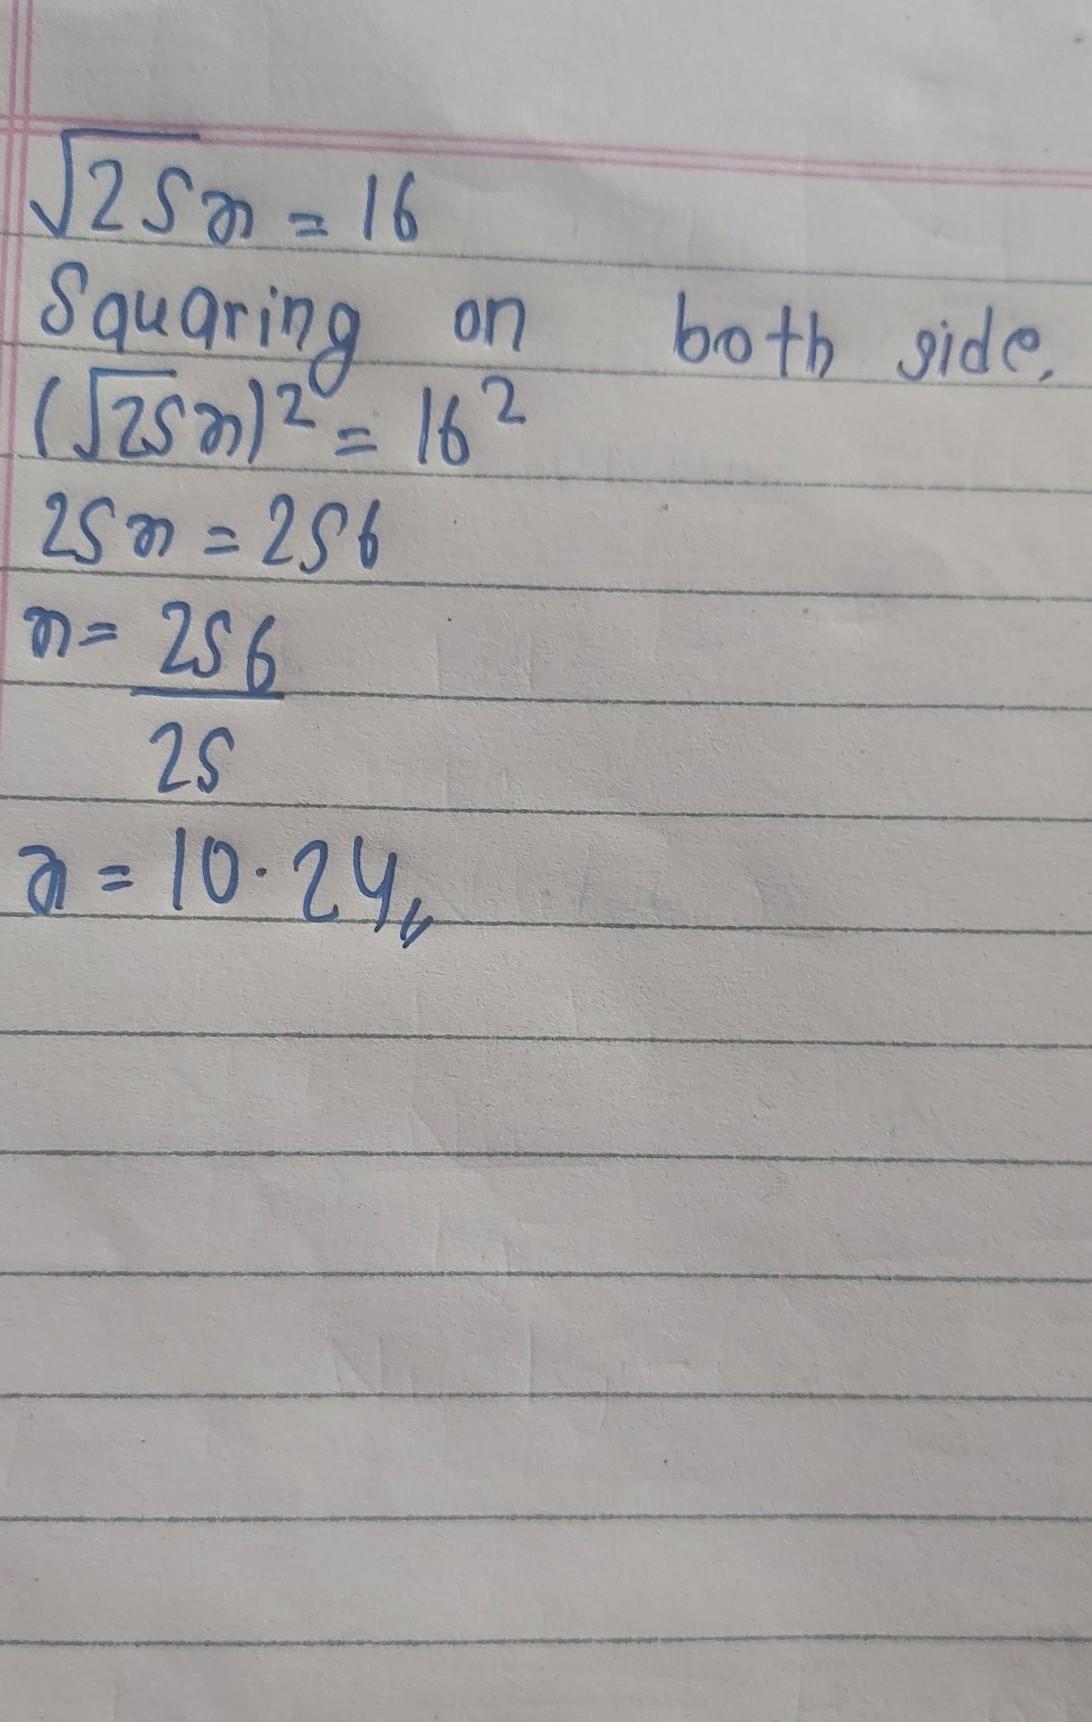 √25x = 16
Squaring on both side.
(√25x)² = 16²
25x = 256
x = 256
25
x = 10.24